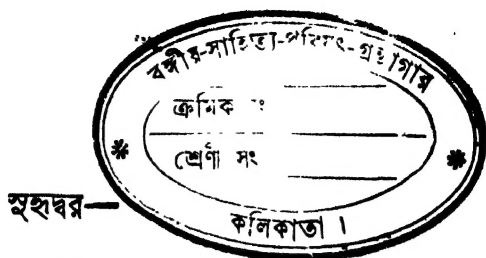 বঙ্গীয়-সাহিত্য-পরিষৎ-গ্রন্থাগার
ক্রমিক সং
শ্রেণী সং
কলিকাতা ।
সুহৃদ্বর—